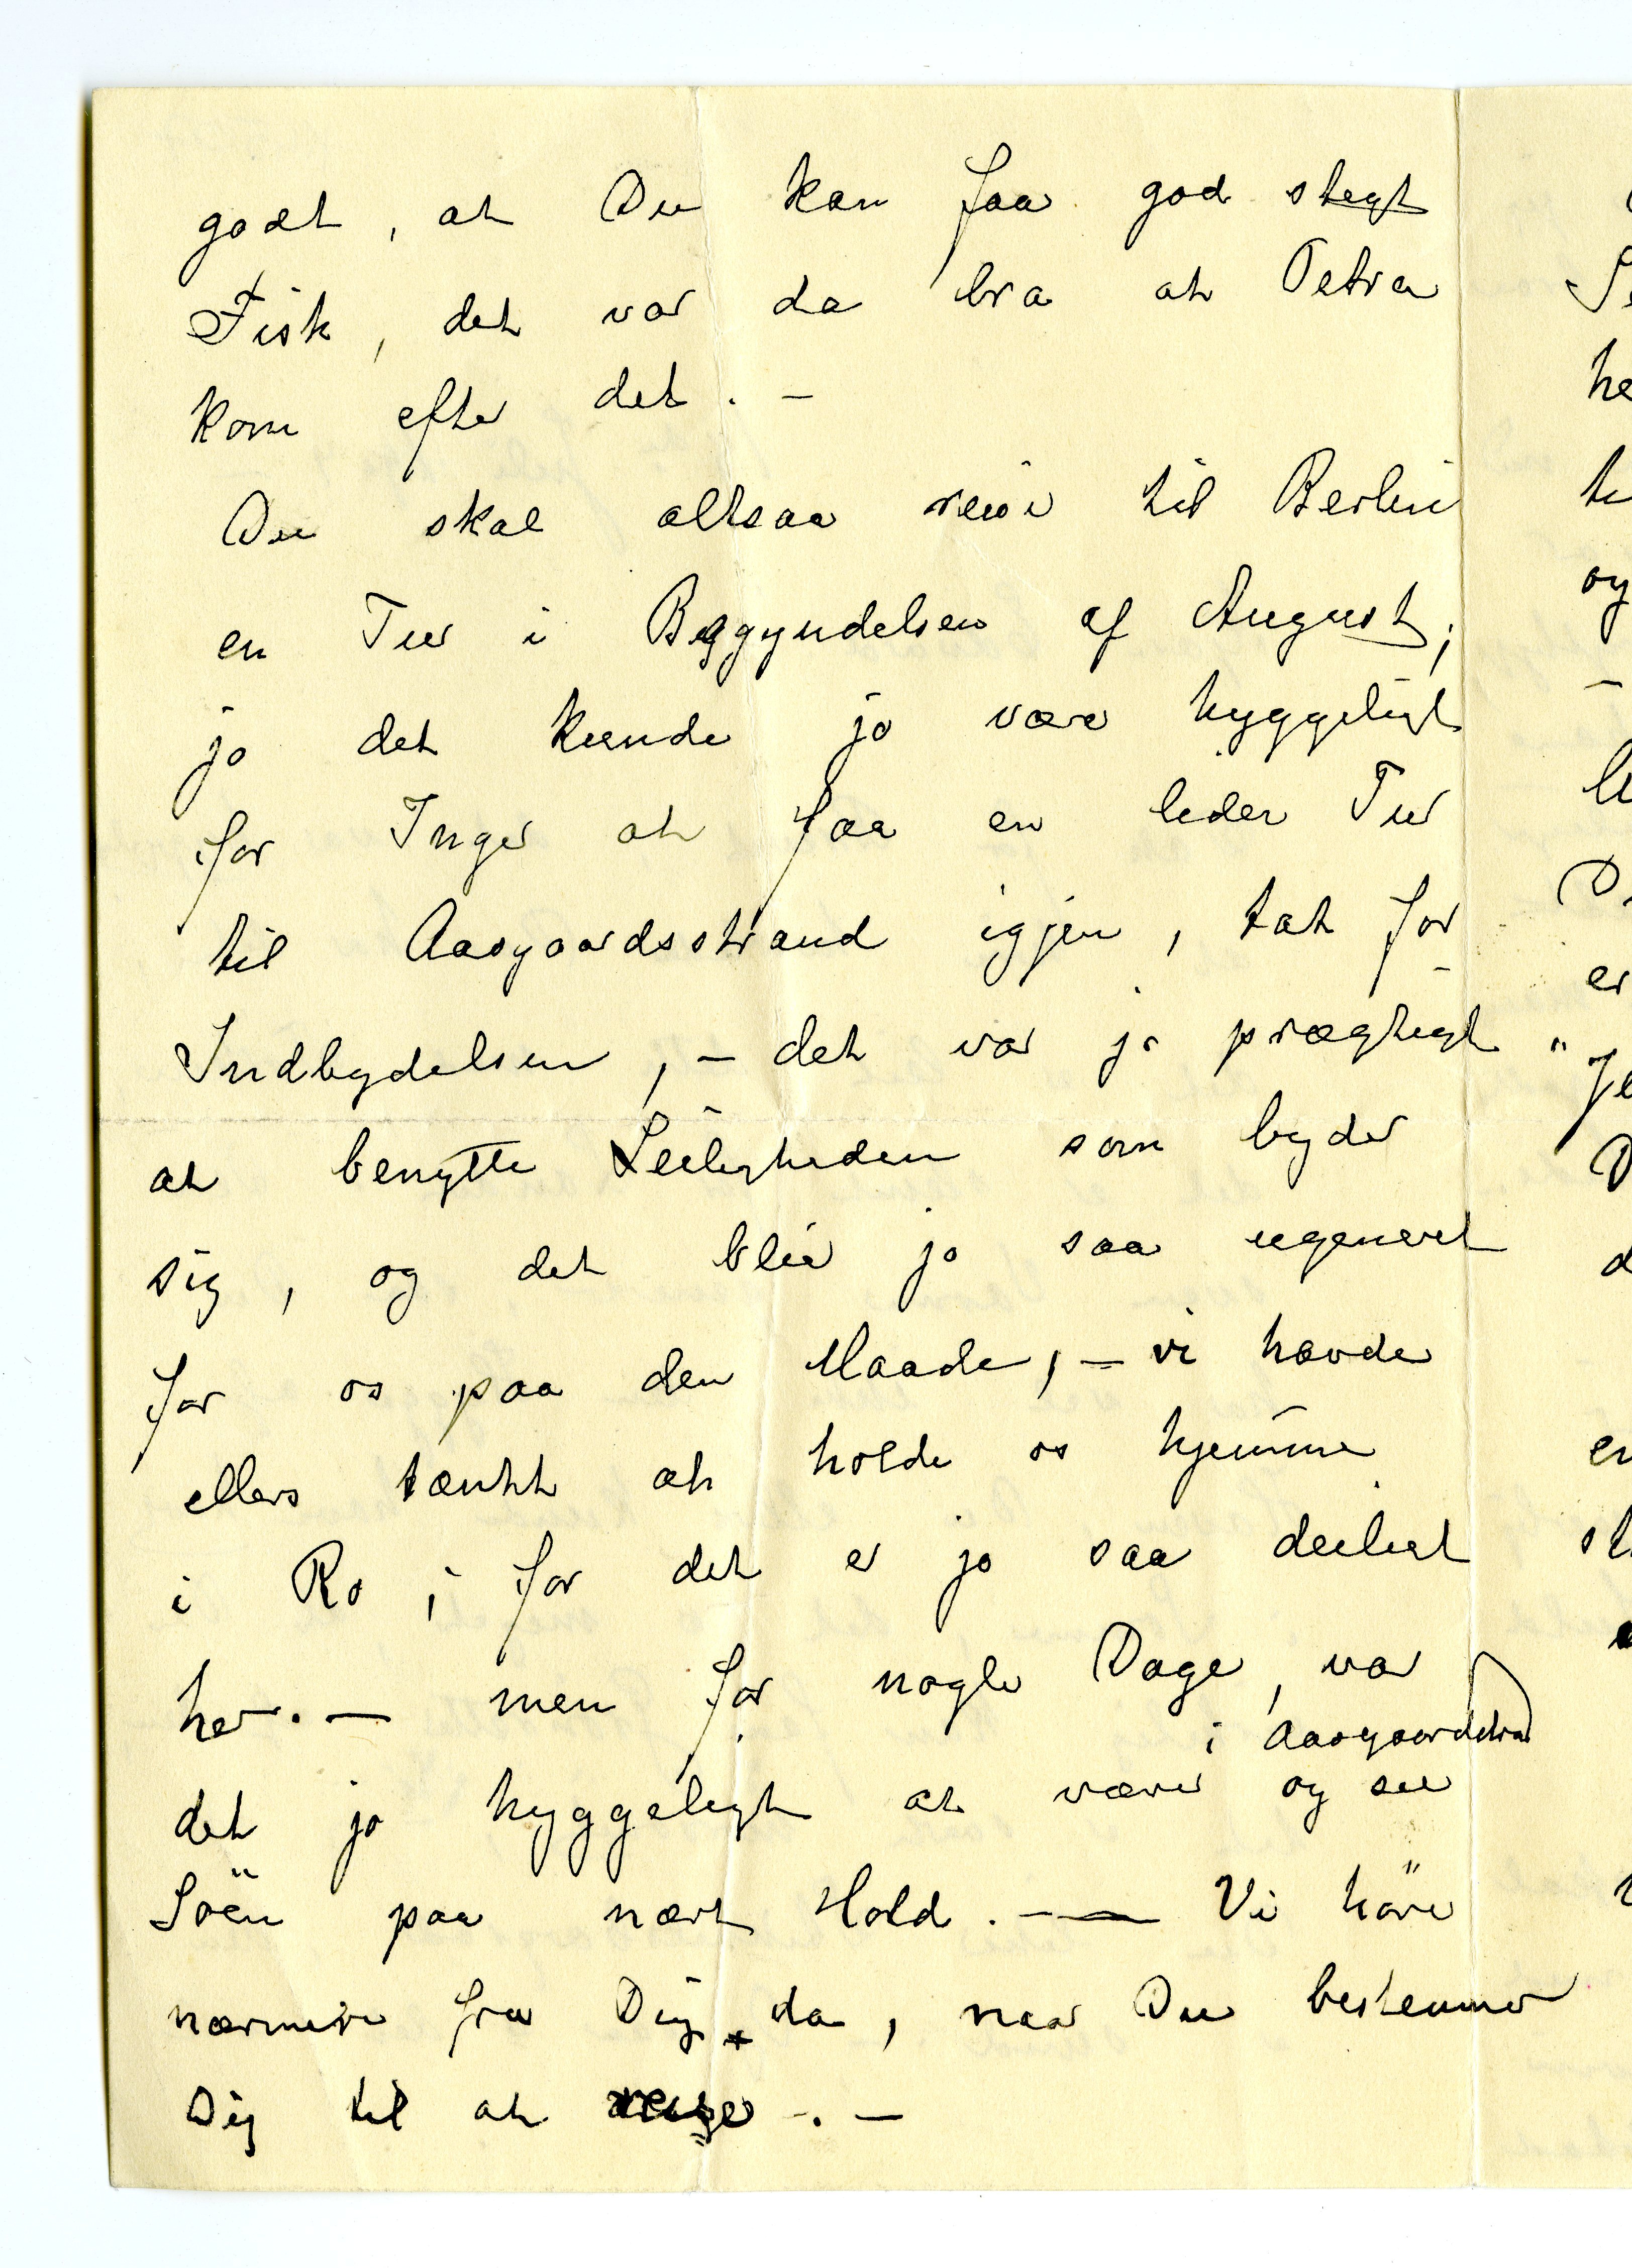 godt, at Du kan faa god stegt
Fisk, det var da bra at Petra
kom efter det. –
Du skal altsaa reise til Berlin
en Tur i Beggyndelsen af August;
ja det kunde jo være hyggeligt
for Inger at faa en liden Tur
til Aasgaardsstrand igjen, tak for
Indbydelsen, – det var jo prægtigt
at benytte Leiligheden som byder
sig, og det blir jo saa ugenert
for os paa den Maade, – vi havde
ellers tænkt at holde os hjemme
i Ro; for det er jo saa deiligt
her. – men for nogle Dage, var
i Aasgaardstrand
det jo hyggeligt at være og see
Söen paa nært Hold. – Vi hörer
nærmere fra Dig da, naar Du bestemmer
Dig til at reise. –